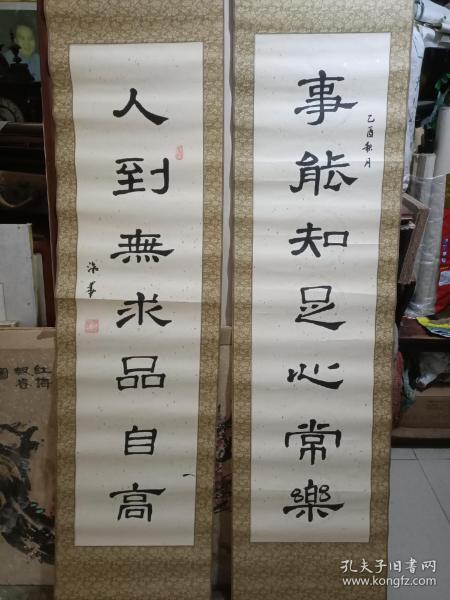 事能知足心常樂
乙酉秋月
人到無求品自高
孔夫子旧书网
www.kongfz.com